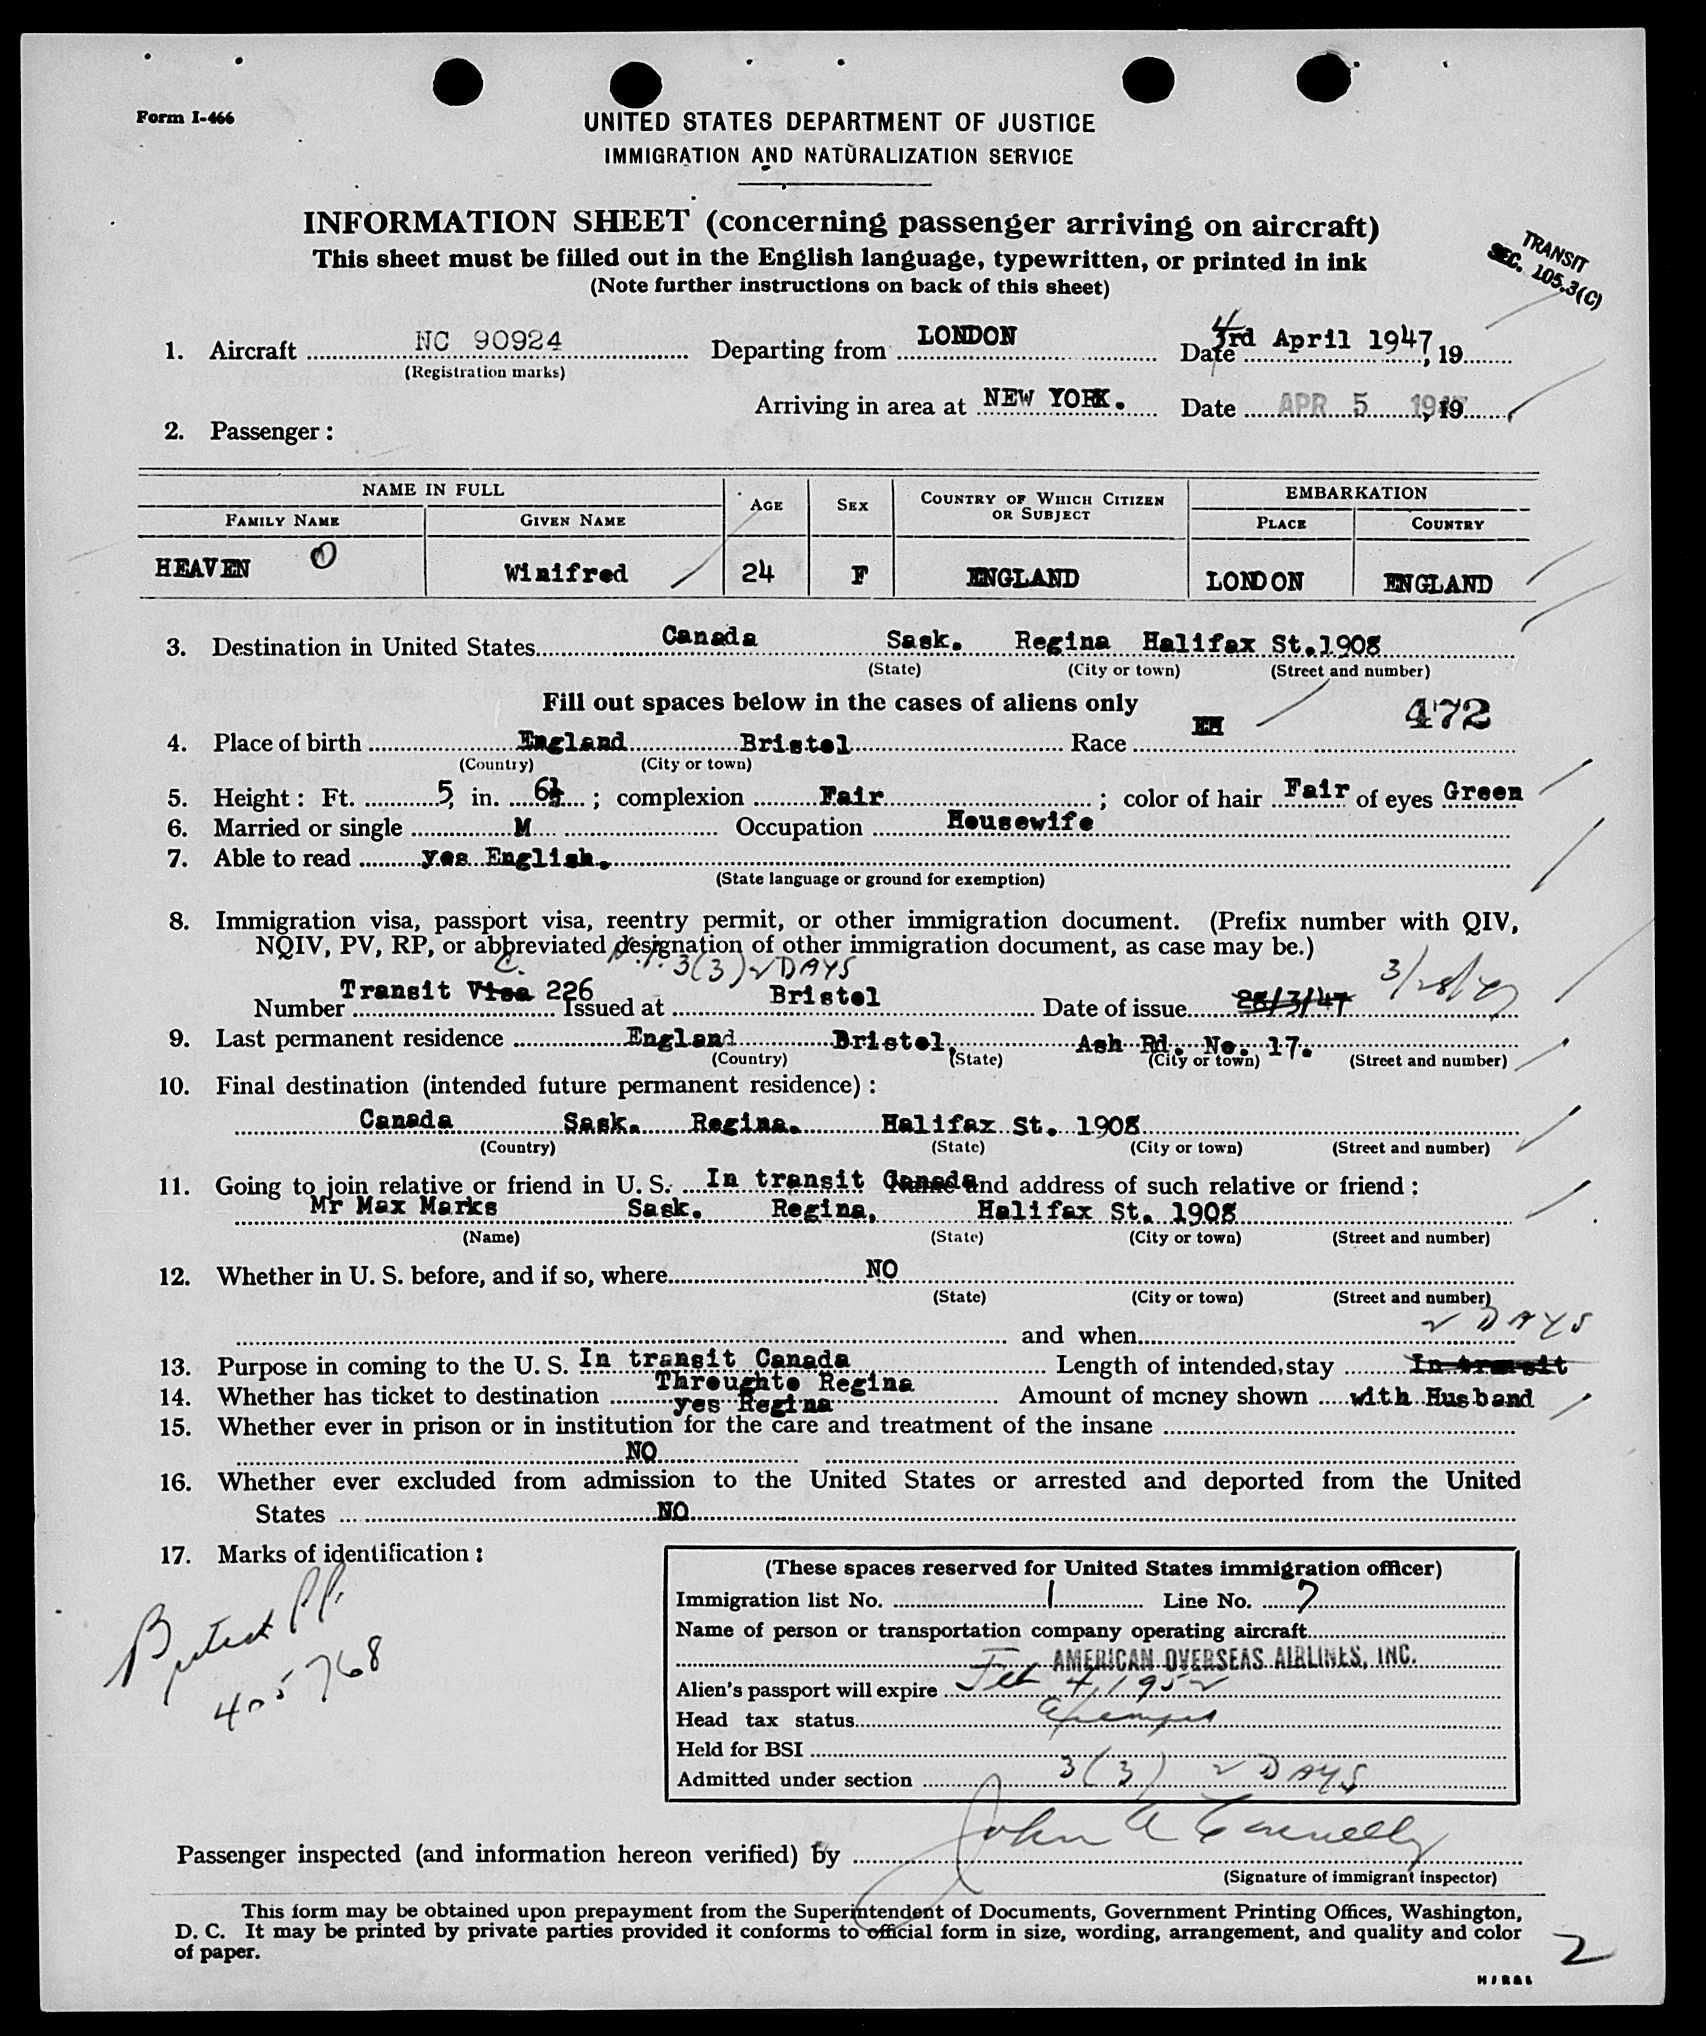 Form I-466
UNITED STATES DEPARTMENT OF JUSTICE
IMMIGRATION AND NATURALIZATION SERVICE
INFORMATION SHEET (concerning passenger arriving on aircraft)
This sheet must be filled out in the English language, typewritten, or printed in ink
(Note further instructions on back of this sheet)
TRANSIT
SEC. 105.3(C)
1. Aircraft NC 90924 Departing from LONDON Date 4 3rd April 1947, 19
(Registration marks)
Arriving in area at NEW YORK. Date APR 5 1947, 19
2. Passenger:
NAME IN FULL AGE SEX COUNTRY OF WHICH CITIZEN OR SUBJECT EMBARKATION
FAMILY NAME GIVEN NAME PLACE COUNTRY
HEAVEN Winifred 24 F ENGLAND LONDON ENGLAND
3. Destination in United States Canada Sask. Regina Halifax St. 1908
(State) (City or town) (Street and number)
Fill out spaces below in the cases of aliens only
472
4. Place of birth England Bristol Race
(Country) (City or town)
5. Height: Ft. 5, in. 6½ ; complexion Fair ; color of hair Fair of eyes Green
6. Married or single M Occupation Housewife
7. Able to read yes English.
(State language or ground for exemption)
8. Immigration visa, passport visa, reentry permit, or other immigration document. (Prefix number with QIV,
NQIV, PV, RP, or abbreviated designation of other immigration document, as case may be.)
C. 3(3) 2 DAYS 3/28/47
Number Transit Visa 226 Issued at Bristol Date of issue 28/3/47
9. Last permanent residence England Bristol, Ash Rd. No. 17.
(Country) (State) (City or town) (Street and number)
10. Final destination (intended future permanent residence):
Canada Sask. Regina. Halifax St. 1908
(Country) (State) (City or town) (Street and number)
11. Going to join relative or friend in U. S. In transit Canada and address of such relative or friend:
Mr Max Marks Sask. Regina, Halifax St. 1908
(Name) (State) (City or town) (Street and number)
12. Whether in U. S. before, and if so, where NO
(State) (City or town) (Street and number)
and when
2 DAYS
13. Purpose in coming to the U. S. In transit Canada Length of intended stay In transit
Throughto Regina
14. Whether has ticket to destination yes Regina Amount of money shown with Husband
15. Whether ever in prison or in institution for the care and treatment of the insane
NO
16. Whether ever excluded from admission to the United States or arrested and deported from the United
States NO
17. Marks of identification:
British PP.
405768
(These spaces reserved for United States immigration officer)
Immigration list No. 1 Line No. 7
Name of person or transportation company operating aircraft
AMERICAN OVERSEAS AIRLINES, INC.
Alien's passport will expire Feb 4, 1952
Head tax status exempt
Held for BSI
Admitted under section 3(3) 2 DAYS
Passenger inspected (and information hereon verified) by John A Connelly
(Signature of immigrant inspector)
This form may be obtained upon prepayment from the Superintendent of Documents, Government Printing Offices, Washington,
D. C. It may be printed by private parties provided it conforms to official form in size, wording, arrangement, and quality and color
of paper.
2